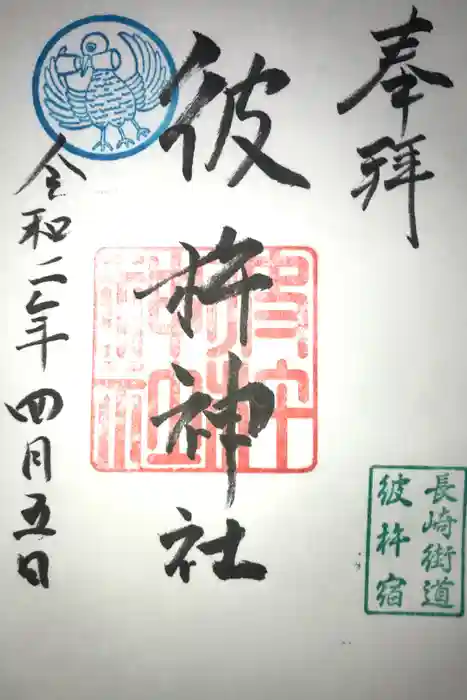 奉拝
彼杵神社
令和二年四月五日
長崎街道
彼杵宿